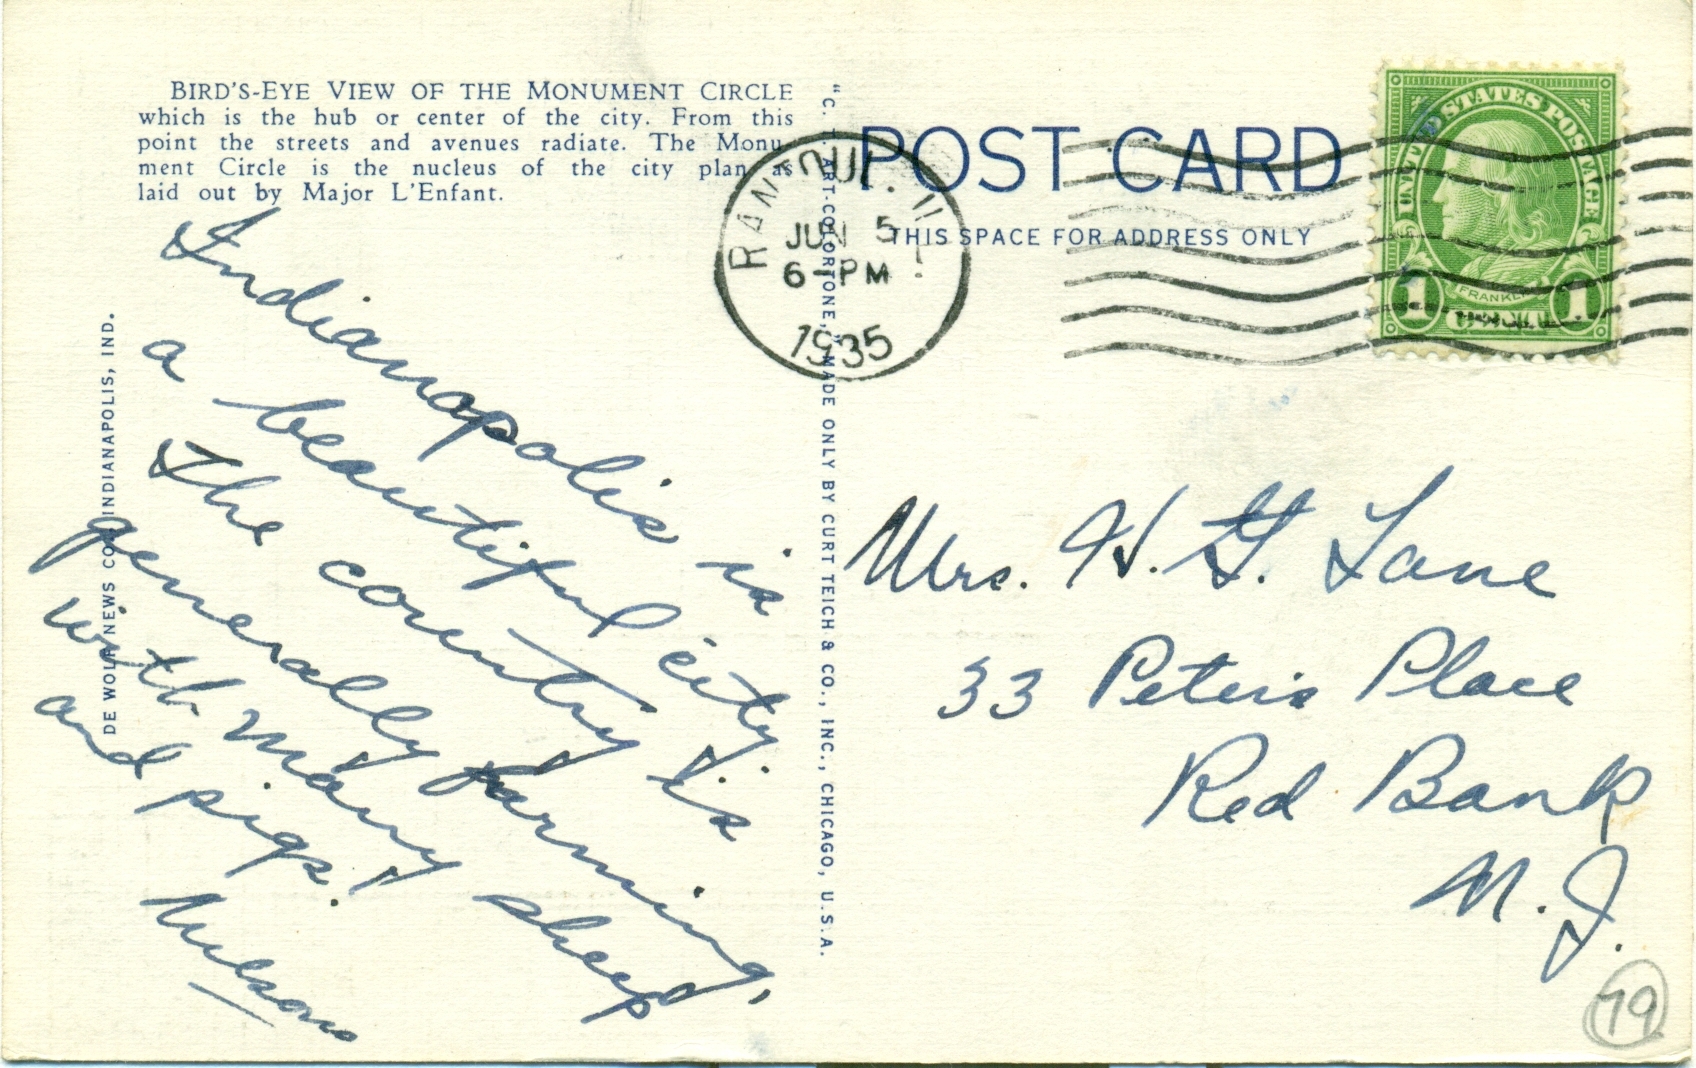 BIRD'S-EYE VIEW OF THE MONUMENT CIRCLE
which is the hub or center of the city. From this
point the streets and avenues radiate. The Monu-
ment Circle is the nucleus of the city plan as
laid out by Major L'Enfant.
Indianapolis is
a beautiful city
The country is
generally farming,
with many sheep
and pigs.
DE WOLF NEWS CO., INDIANAPOLIS, IND.
"C. T. ART-COLORTONE," MADE ONLY BY CURT TEICH & CO., INC., CHICAGO, U.S.A.
POST CARD
THIS SPACE FOR ADDRESS ONLY
RANTOUL, ILL.
JUN 5
6-PM
1935
UNITED STATES POSTAGE
FRANKLIN
1 1
Mrs. H. G. Lane
33 Peters Place
Red Bank
N. J.
79